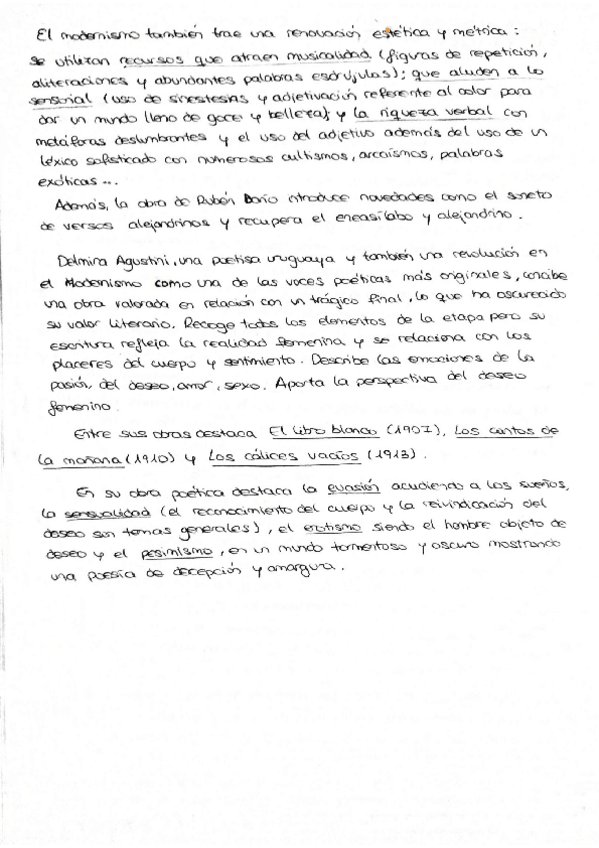 El modernismo también trae una renovación estética y métrica:
se utilizan recursos que atraen musicalidad (figuras de repetición,
aliteraciones y abundantes palabras esdrújulas); que aluden a lo
sensorial (uso de sinestesias y adjetivación referente al color para
dar un mundo lleno de goce y belleza) y la riqueza verbal con
metáforas deslumbrantes y el uso del adjetivo además del uso de un
léxico sofisticado con numerosos cultismos, arcaísmos, palabras
exóticas...
Además, la obra de Rubén Darío introduce novedades como el soneto
de versos alejandrinos y recupera el eneasílabo y alejandrino.
Delmira Agustini, una poetisa uruguaya y también una revolución en
el Modernismo como una de las voces poéticas más originales, concibe
una obra valorada en relación con un trágico final, lo que ha oscurecido
su valor literario. Recoge todos los elementos de la etapa pero su
escritura refleja la realidad femenina y se relaciona con los
placeres del cuerpo y sentimiento. Describe las emociones de la
pasión, del deseo, amor, sexo. Aporta la perspectiva del deseo
femenino.
Entre sus obras destaca El libro blanco (1907), Los cantos de
la mañana (1910) y Los cálices vacíos (1913).
En su obra poética destaca la evasión acudiendo a los sueños,
la sensualidad (el reconocimiento del cuerpo y la reivindicación del
deseo son temas generales), el erotismo siendo el hombre objeto de
deseo y el pesimismo, en un mundo tormentoso y oscuro mostrando
una poesía de decepción y amargura.